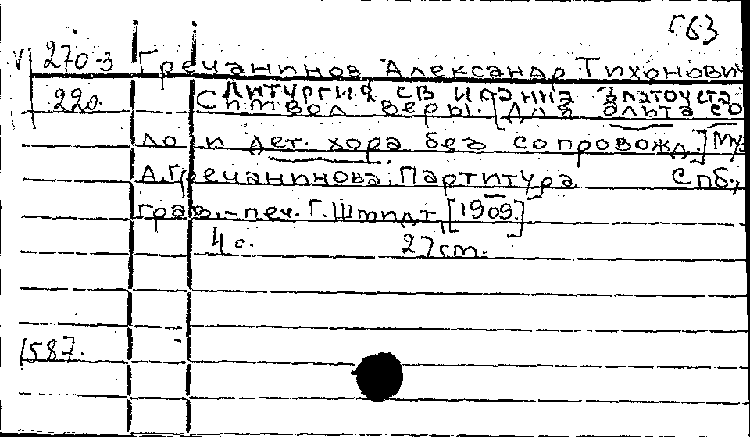 Г63
V 270-3 Гречанинов Александр Тихонович
Литургия св Иоанна Златоуста
220. Символ веры. [Для альта со
ло и дет. хора без сопровожд.] Муз
А.Гречанинова. Партитура Спб.,
грав.-печ. Г.Шмидт, [1909.]
4 с. 27 cm.
1587.